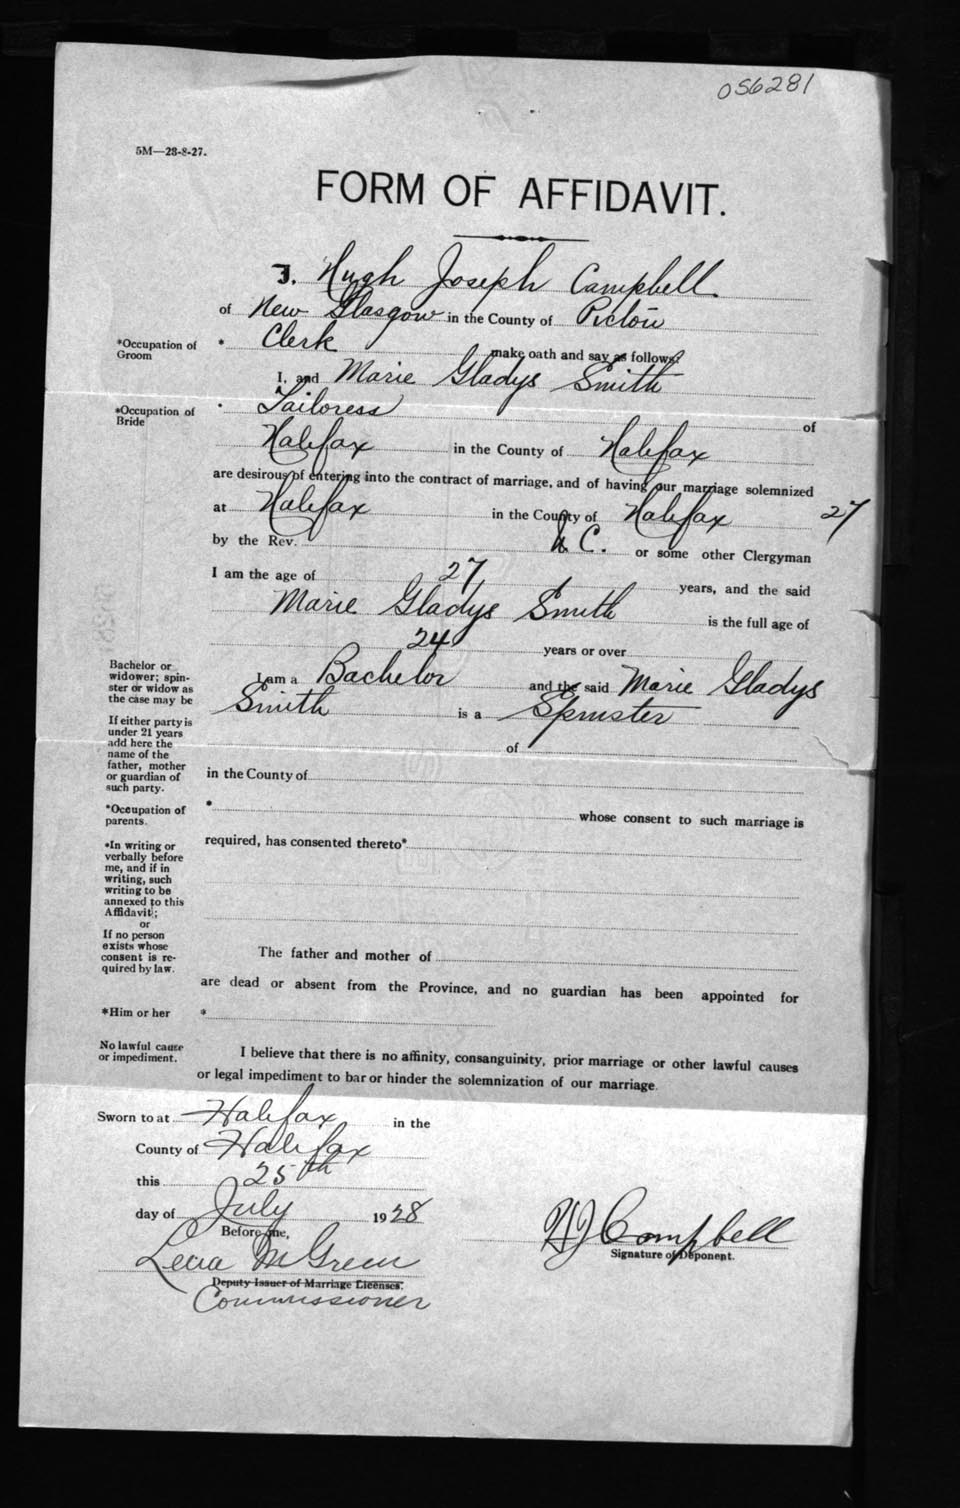 056281
5M—23-8-27.
FORM OF AFFIDAVIT.
I, Hugh Joseph Campbell
of New Glasgow in the County of Pictou
*Occupation of Groom * Clerk make oath and say as follows:
I, and Marie Gladys Smith
*Occupation of Bride * Tailoress of
Halifax in the County of Halifax
are desirous of entering into the contract of marriage, and of having our marriage solemnized
at Halifax in the County of Halifax 27
by the Rev. C. or some other Clergyman
I am the age of 27 years, and the said
Marie Gladys Smith is the full age of
24 years or over
Bachelor or widower; spinster or widow as the case may be
I am a Bachelor and the said Marie Gladys
Smith is a Spinster
If either party is under 21 years add here the name of the father, mother or guardian of such party.
of
in the County of
*Occupation of parents.
* whose consent to such marriage is
required, has consented thereto*
*In writing or verbally before me, and if in writing, such writing to be annexed to this Affidavit;
or
If no person exists whose consent is required by law.
The father and mother of
are dead or absent from the Province, and no guardian has been appointed for
*Him or her *
No lawful cause or impediment.
I believe that there is no affinity, consanguinity, prior marriage or other lawful causes
or legal impediment to bar or hinder the solemnization of our marriage.
Sworn to at Halifax in the
County of Halifax
this 25th
day of July 1928
Before me,
H J Campbell
Signature of Deponent.
Green
Deputy Issuer of Marriage Licenses.
Commissioner